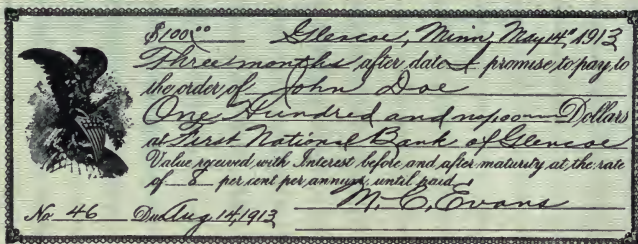 $100.00 Glencoe, Minn, May 14th, 1913
Three months after date I promise to pay to
the order of John Doe
One Hundred and no/100 Dollars
at First National Bank of Glencoe
Value received with Interest before and after maturity at the rate
of 8 per cent per annum, until paid
No. 46 Due Aug 14, 1913 M. C. Evans